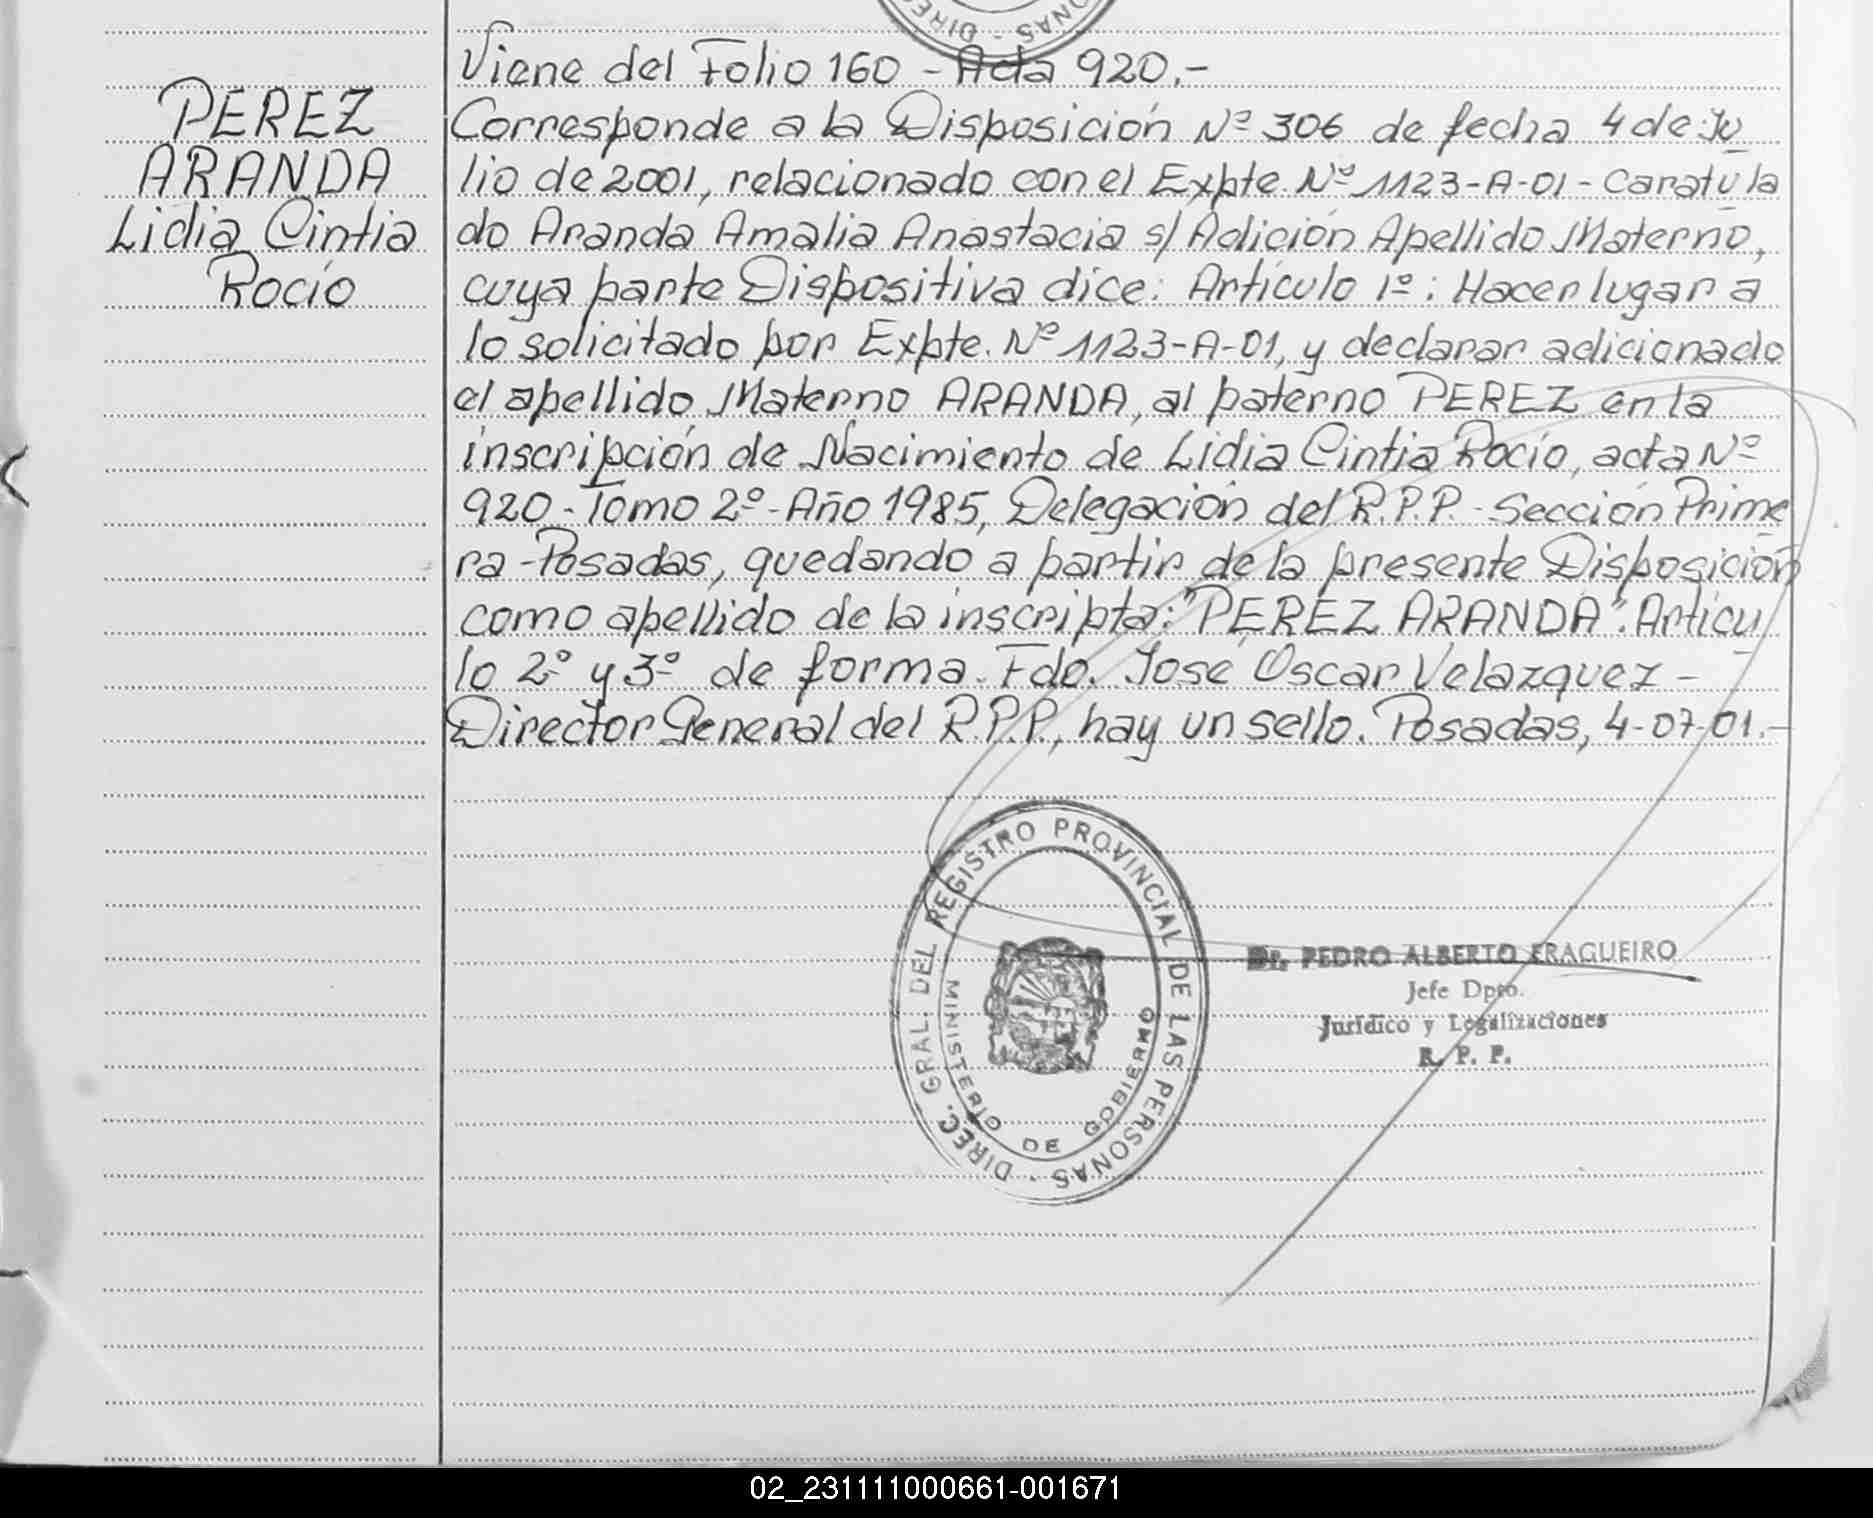 PEREZ
ARANDA
Lidia Cintia
Rocío
ONAS - DIREC
Viene del Folio 160 - Acta 920.-
Corresponde a la Disposición Nº 306 de fecha 4 de Ju
lio de 2001, relacionado con el Expte. Nº 1123-A-01 - Caratula
do Aranda Amalia Anastacia s/ Adición Apellido Materno,
cuya parte Dispositiva dice: Artículo 1º: Hacer lugar a
lo solicitado por Expte. Nº 1123-A-01, y declarar adicionado
el apellido Materno ARANDA, al paterno PEREZ en la
inscripción de Nacimiento de Lidia Cintia Rocío, acta Nº
920 - Tomo 2º - Año 1985, Delegación del R.P.P. - Sección Prime
ra - Posadas, quedando a partir de la presente Disposición
como apellido de la inscripta: "PEREZ ARANDA". Artícu
lo 2º y 3º de forma. Fdo. José Oscar Velazquez -
Director General del R.P.P., hay un sello. Posadas, 4-07-01.-
DIREC. GRAL. DEL REGISTRO PROVINCIAL DE LAS PERSONAS -
MINISTERIO DE GOBIERNO
Dr. PEDRO ALBERTO FRAGUEIRO
Jefe Dpto.
Jurídico y Legalizaciones
R. P. P.
02_231111000661-001671